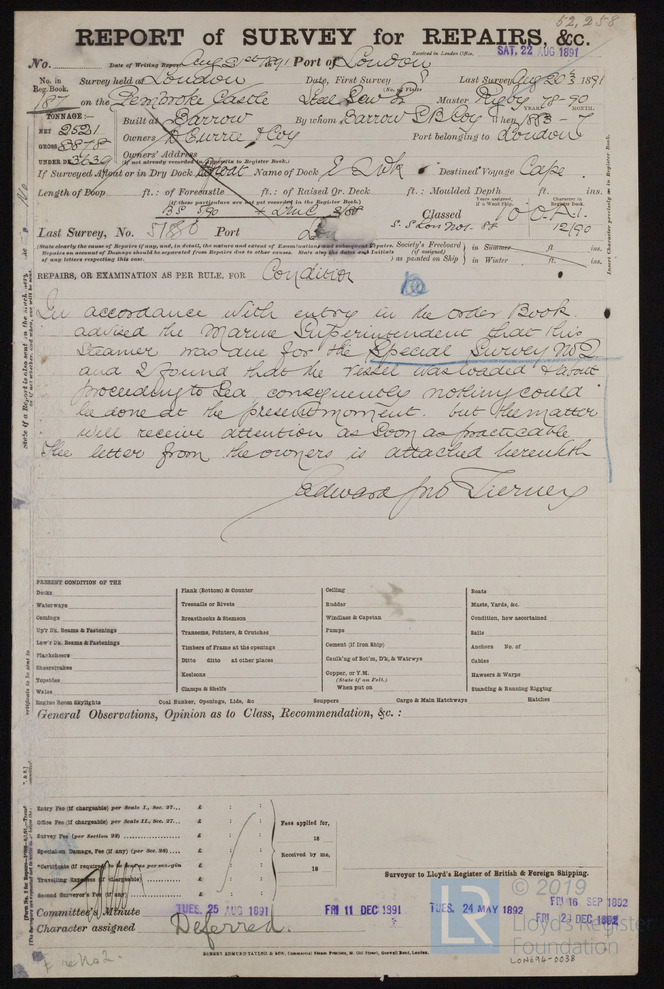 52,258
REPORT of SURVEY for REPAIRS, &c.
Received in London Office. SAT. 22 AUG 1891
No. Date of Writing Report Aug 21st 1891 Port of London
No. in Reg. Book. Survey held at London Date, First Survey Last Survey Aug 20th 1891
(No. of Visits)
187 on the Pembroke Castle Master Rigby 78-90
YEARS. MONTH.
TONNAGE:—
Built at Barrow By whom Barrow S B Coy When 1883 - 7
NET 2521
GROSS 3878 Owners D Currie & Coy Port belonging to London
UNDER DK 3639 Owners' Address
(if not already recorded in Appendix to Register Book.)
If Surveyed Afloat or in Dry Dock Afloat Name of Dock Destined Voyage Cape.
Length of Poop ft.: of Forecastle ft.: of Raised Qr. Deck ft.: Moulded Depth ft. ins.
(if these particulars are not yet recorded in the Register Book.)
BS 5,90
Classed 100A1.
12/90
Last Survey, No. 51880 Port Lon
Society's Freeboard (if assigned) as painted on Ship in Summer ft. ins.
in Winter ft. ins.
REPAIRS, OR EXAMINATION AS PER RULE, FOR Condition
In accordance with entry in the order Book.
advised the Marine Superintendent that this
Steamer was due for the Special Survey No 2.
and I found that the vessel was loaded & about
proceeding to Sea, consequently nothing could
be done at the present moment. but the matter
will receive attention as soon as practicable
The letter from the owners is attached herewith
Edward Jno Tierney
PRESENT CONDITION OF THE
Decks
Waterways
Comings
Up'r Dk. Beams & Fastenings
Low'r Dk. Beams & Fastenings
Planksheers
Sheerstrakes
Topsides
Wales
Engine Room Skylights
Plank (Bottom) & Counter
Treenails or Rivets
Breasthooks & Stemson
Transoms, Pointers, & Crutches
Timbers of Frame at the openings
Ditto ditto at other places
Keelsons
Clamps & Shelfs
Coal Bunker, Openings, Lids, &c
Ceiling
Rudder
Windlass & Capstan
Pumps
Cement (if Iron Ship)
Caulk'g of Bot'm, D'k, & Watrwys
Copper, or Y.M.
(State if on Felt.)
When put on
Scuppers
Cargo & Main Hatchways
Boats
Masts, Yards, &c.
Condition, how ascertained
Sails
Anchors No. of
Cables
Hawsers & Warps
Standing & Running Rigging
Hatches
General Observations, Opinion as to Class, Recommendation, &c. :
Entry Fee (if chargeable) per Scale I., Sec. 27... £ : :
Office Fee (if chargeable) per Scale II., Sec. 27... £ : :
Survey Fee (per Section 28) £ : :
Special or Damage, Fee (if any) (per Sec. 28)... £ : :
*Certificate (if required) to be sent as per margin £ : :
Travelling Expenses (if chargeable) £ : :
Second Surveyor's Fee (if any) £ : :
Fees applied for,
18
Received by me,
18
Surveyor to Lloyd's Register of British & Foreign Shipping.
Committee's Minute TUES. 25 AUG 1891 FRI 11 DEC 1891 TUES. 24 MAY 1892 FRI 16 SEP 1892
FRI 29 DEC 1892
Character assigned Deferred.
ROBERT EDMUND TAYLOR & SON, Commercial Steam Printers, 19, Old Street, Goswell Road, London.
© 2019
LR
Lloyd's Register
Foundation
LON694-0038